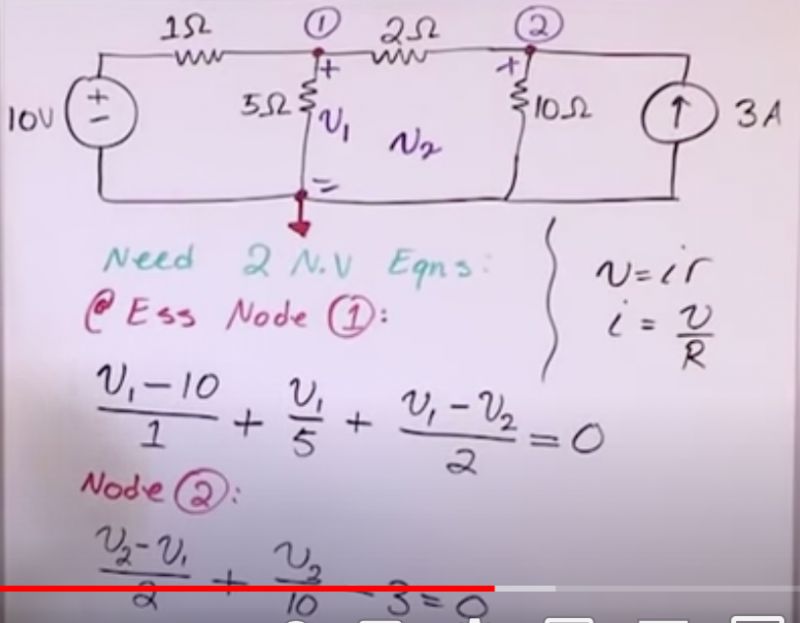 1Ω ① 2Ω ②
10V + − 5Ω + v₁ − v₂ + 10Ω ↑ 3A
Need 2 N.V Eqns:
@ Ess Node ①:
v = ir
i = v/R
(v₁ − 10)/1 + v₁/5 + (v₁ − v₂)/2 = 0
Node ②:
(v₂ − v₁)/2 + v₂/10 − 3 = 0